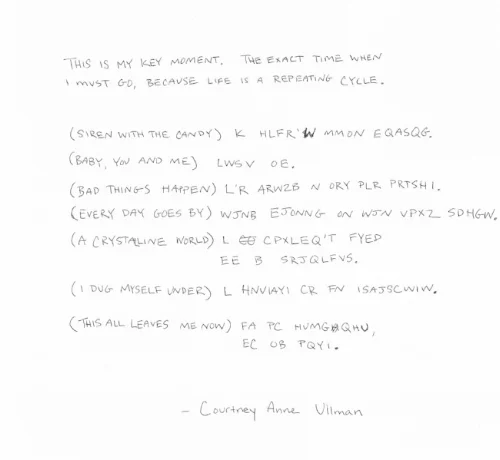 THIS IS MY KEY MOMENT. THE EXACT TIME WHEN
I MUST GO, BECAUSE LIFE IS A REPEATING CYCLE.
(SIREN WITH THE CANDY) K HLFR'W MMON EQASQG.
(BABY, YOU AND ME) LWSV OE.
(BAD THINGS HAPPEN) L'R ARWZB N ORY PLR PRTSHI.
(EVERY DAY GOES BY) WJNB EJONNG ON WJN VPXZ SDHGW.
(A CRYSTALLINE WORLD) L CPXLEQ'T FYED
EE B SRJQLFVS.
(I DUG MYSELF UNDER) L HNVIAYI CR FN ISAJSCWIW.
(THIS ALL LEAVES ME NOW) FA PC HVMGBQHU,
EC OB PQYI.
- Courtney Anne Ullman